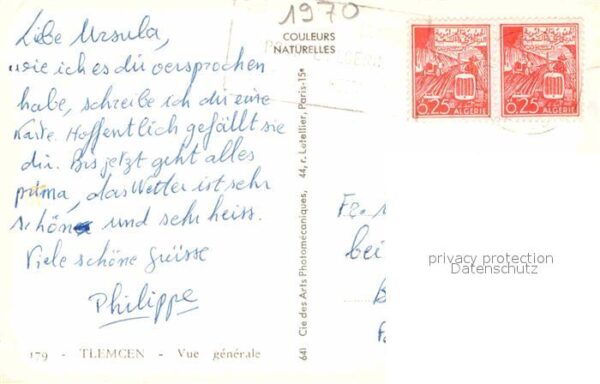 1970
COULEURS
NATURELLES
Liebe Ursula,
wie ich es dir versprochen
habe, schreibe ich dir eine
Karte. Hoffentlich gefällt sie
dir. Bis jetzt geht alles
prima, das Wetter ist sehr
schön und sehr heiss.
Viele schöne Grüsse
Philippe
179 - TLEMCEN - Vue générale
641 Cie des Arts Photomécaniques, 44, r. Letellier, Paris-15e
0,25 ALGERIE
0,25 ALGERIE
bei
privacy protection
Datenschutz